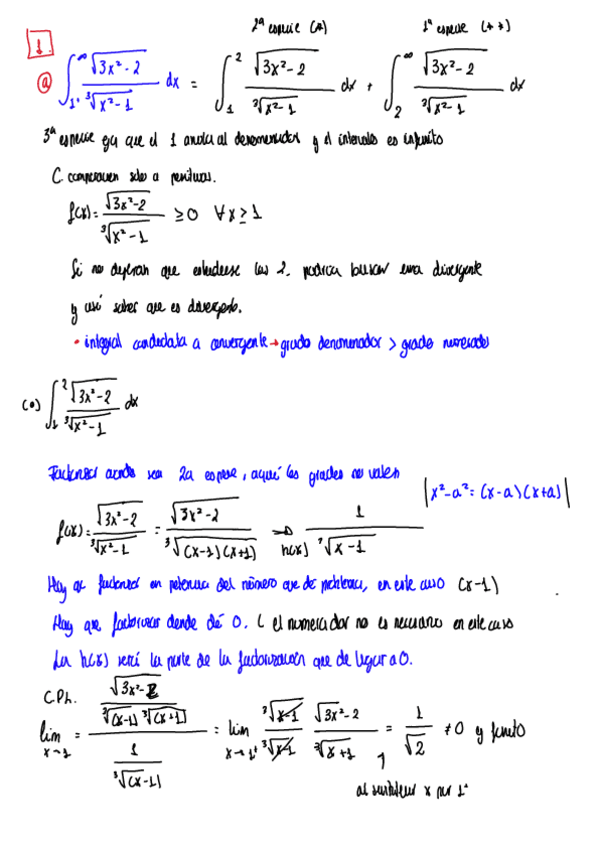 2ª especie (*) 1ª especie (**)
1.
a) ∫₁⁺^∞ √(3x²-2) / ∛(x²-1) dx = ∫₁² √(3x²-2) / ∛(x²-1) dx + ∫₂^∞ √(3x²-2) / ∛(x²-1) dx
3ª especie ya que el 1 anula al denominador y el intervalo es infinito
C. comparación solo a positivas.
f(x) = √(3x²-2) / ∛(x²-1) ≥ 0 ∀x ≥ 1
Si no dijeran que estudiese las 2, podría buscar una divergente
y así saber que es divergente.
• integral candidata a convergente → grado denominador > grado numerador
(*) ∫₁² √(3x²-2) / ∛(x²-1) dx
Factorizar cuando sea 2a especie, aquí los grados no valen
|x²-a² = (x-a)(x+a)|
f(x) = √(3x²-2) / ∛(x²-1) = √(3x²-2) / ∛((x-1)(x+1)) → h(x) 1 / ∛(x-1)
Hay que factorizar en potencia del número que da problemas, en este caso (x-1)
Hay que factorizar donde dé 0. (el numerador no es necesario en este caso
La h(x) será la parte de la factorización que de lugar a 0.
C.P.h.
lim x→1 = (√(3x²-2) / ∛(x-1) ∛(x+1)) / (1 / ∛(x-1)) = lim x→1⁺ ∛(x-1) √(3x²-2) / ∛(x-1) ∛(x+1) = 1 / ∛2 ≠ 0 y finito
al sustituir x por 1⁺